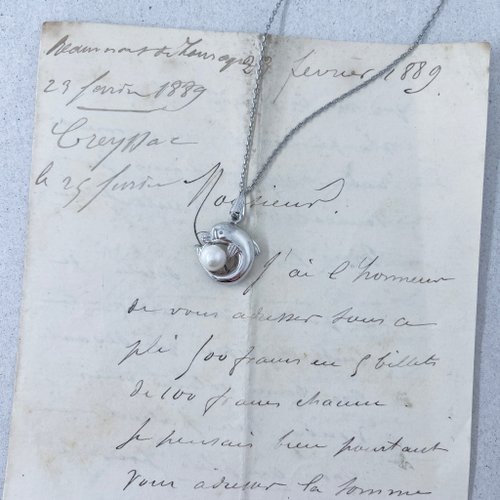 23 février 1889.
23 février 1889
Creyssac
le 25 février
Monsieur.
J'ai l'honneur
de vous adresser sous ce
pli 500 francs en 5 billets
de 100 francs chacun.
Je pensais bien pourtant
vous adresser la somme